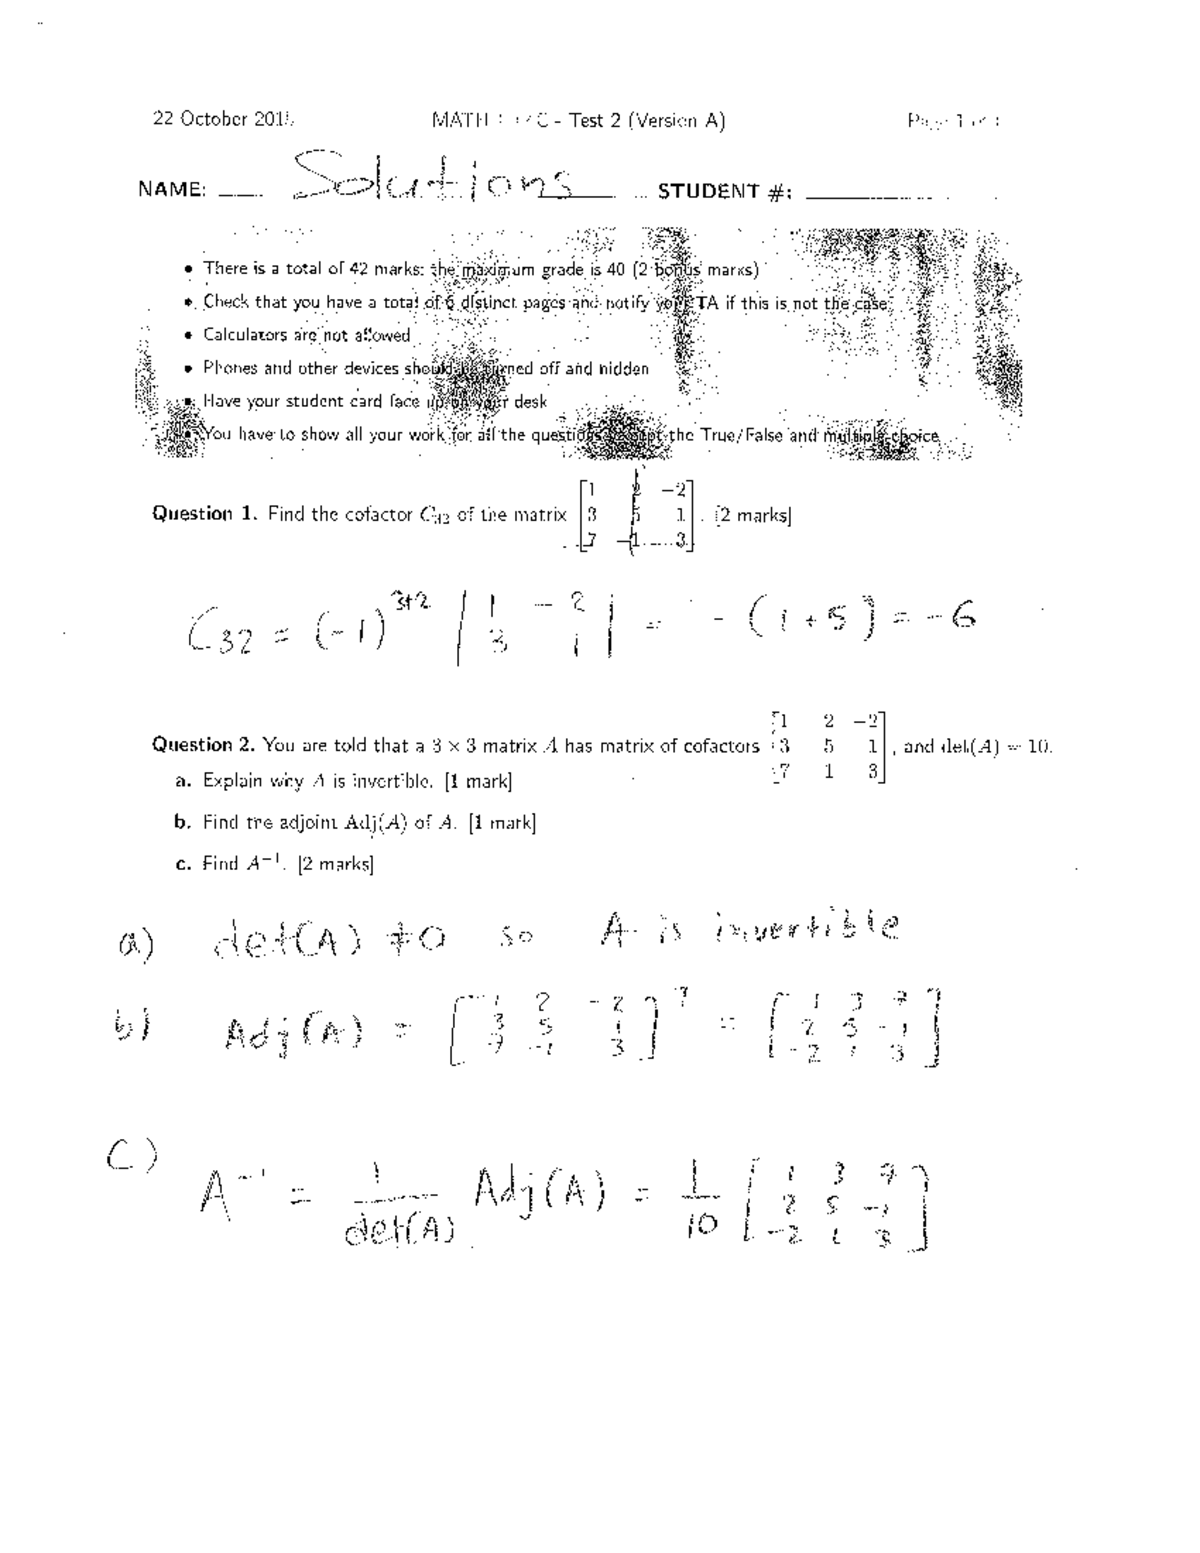 22 October 201
MATH C - Test 2 (Version A)
NAME: Solutions STUDENT #:
• There is a total of 42 marks: the maximum grade is 40 (2 bonus marks)
• Check that you have a total of 6 distinct pages and notify your TA if this is not the case
• Calculators are not allowed
• Phones and other devices should be turned off and hidden
• Have your student card face up on your desk
• You have to show all your work for all the questions except the True/False and multiple-choice
1 2 −2
Question 1. Find the cofactor C32 of the matrix 3 5 1 . [2 marks]
7 −1 3
C32 = (-1)^3+2 | 1 -2 | = - (1+5) = -6
3 1
1 2 −2
Question 2. You are told that a 3 × 3 matrix A has matrix of cofactors 3 5 1 , and det(A) = 10.
7 1 3
a. Explain why A is invertible. [1 mark]
b. Find the adjoint Adj(A) of A. [1 mark]
c. Find A−1. [2 marks]
a) det(A) ≠ 0 so A is invertible
1 2 -2 T 1 3 7
b) Adj(A) = 3 5 1 = 2 5 -1
7 -1 3 -2 1 3
c)
1 1 1 3 7
A-1 = Adj(A) = 2 5 -1
det(A) 10 -2 1 3